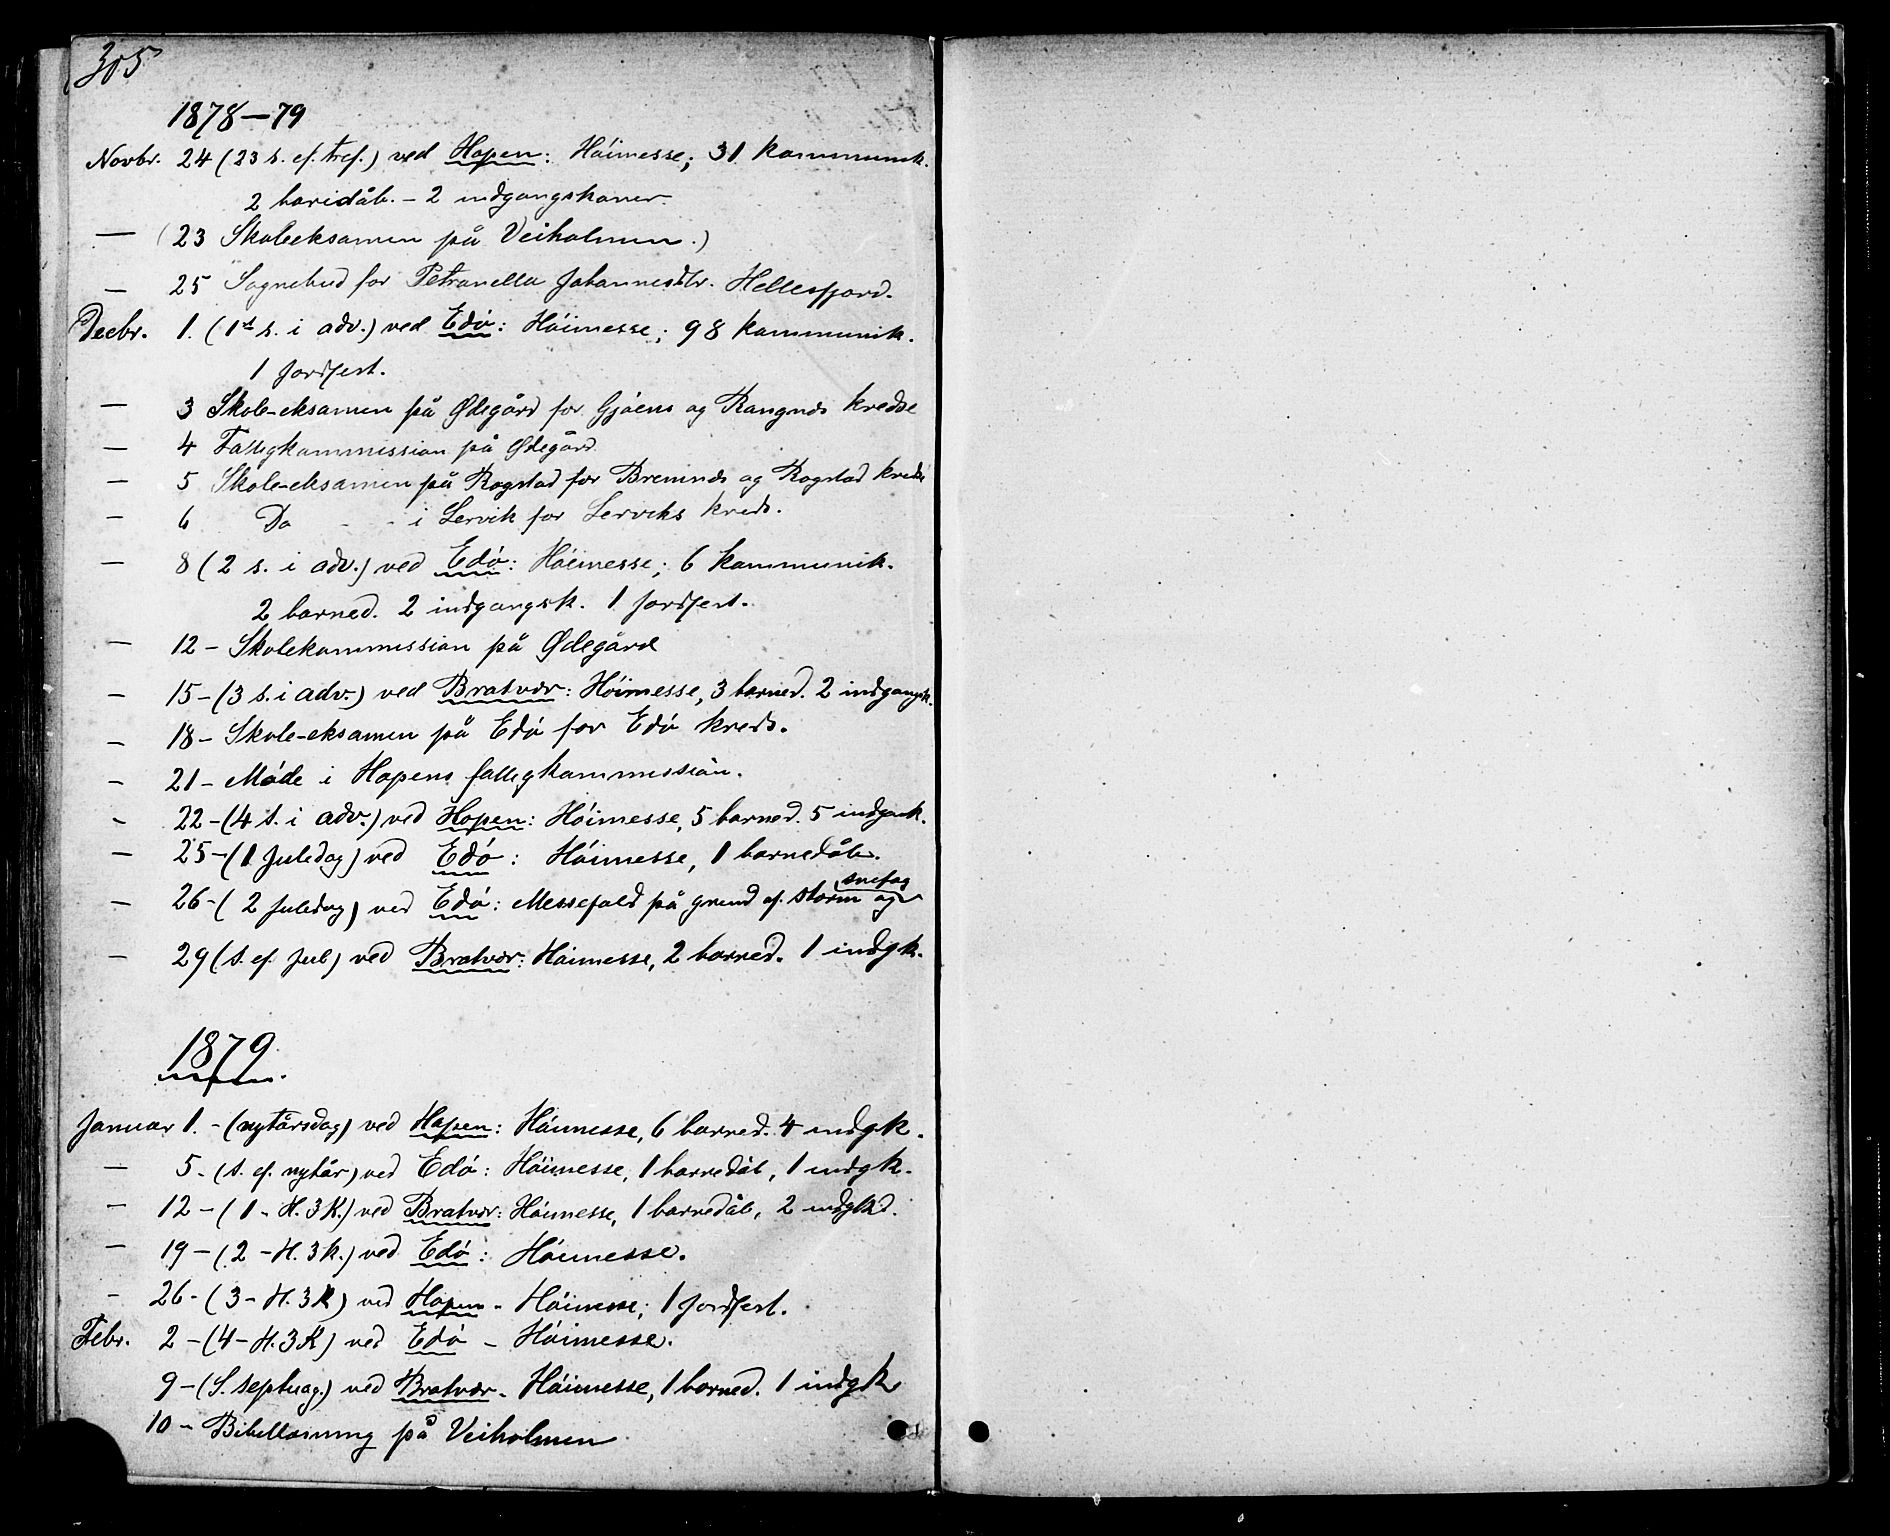 305
1878–79
Novbr. 24 (23 s. ef. tref.) ved Hopen: Høimesse; 31 kommunik.
2 barnedåb. – 2 indgangskoner.
— (23 Skoleeksamen på Veiholmen.)
— 25 Sognebud for Petronella Johannesdtr. Hellesfjord.
Decbr. 1. (1st s. i adv.) ved Edø: Høimesse; 98 kommunik.
1 jordfest.
— 3 Skole-eksamen på Ødegård for Gjøens og Rangnds kredse
— 4 Fattigkommission på Ødegård.
— 5 Skole-eksamen på Rogstad for Bremnds og Rogstad kreds
— 6 Do - - i Lervik for Lerviks kreds.
— 8 (2 s. i adv.) ved Edø: Høimesse; 6 kommunik.
2 barned. 2 indgangsk. 1 jordfest.
— 12 – Skolekommission på Ødegård
— 15 – (3 s. i adv.) ved Bratvær: Høimesse, 3 barned. 2 indgangsk.
— 18 – Skole-eksamen på Edø for Edø kreds.
— 21 – Møde i Hopens fattigkommission.
— 22 – (4 s. i adv.) ved Hopen: Høimesse, 5 barned. 5 indgsk.
— 25 – (1 Juledag) ved Edø: Høimesse, 1 barnedåb.
— 26 – (2 Juledag) ved Edø: Messefald på grund af storm og snefog
— 29 (s. ef. Jul) ved Bratvær: Høimesse, 2 barned. 1 indgk.
1879.
Januar 1. – (nytårsdag) ved Hopen: Høimesse, 6 barned. 4 indgk.
— 5 – (s. ef. nytår) ved Edø: Høimesse, 1 barnedåb, 1 indgk.
— 12 – (1 – H. 3 K.) ved Bratvær: Høimesse, 1 barnedåb, 2 indgk.
— 19 – (2 – H. 3 k.) ved Edø: Høimesse.
— 26 – (3 – H. 3 K) ved Hopen – Høimesse; 1 jordfest.
Febr. 2 – (4 – H. 3 K) ved Edø – Høimesse.
9 – (S. septuag.) ved Bratvær – Høimesse, 1 barned. 1 indgk
10 – Bibellæsning på Veiholmen